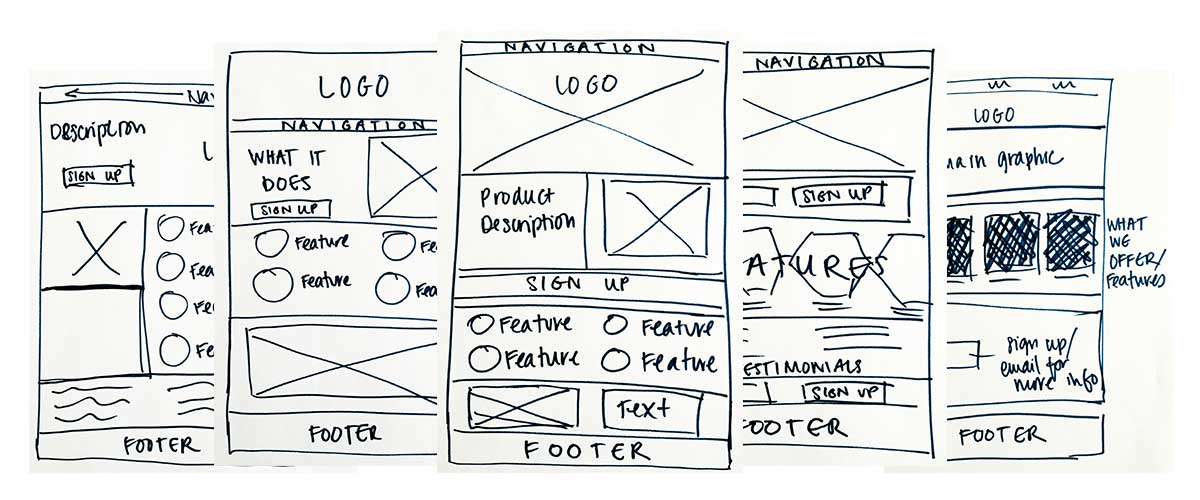 Description
SIGN UP
FOOTER
LOGO
NAVIGATION
WHAT IT
DOES
SIGN UP
Feature
Feature
FOOTER
NAVIGATION
LOGO
Product
Description
SIGN UP
Feature
Feature
Feature
Feature
Text
FOOTER
NAVIGATION
SIGN UP
ATURES
ESTIMONIALS
SIGN UP
FOOTER
LOGO
main graphic
WHAT
WE
OFFER/
Features
sign up/
email for
more info
FOOTER